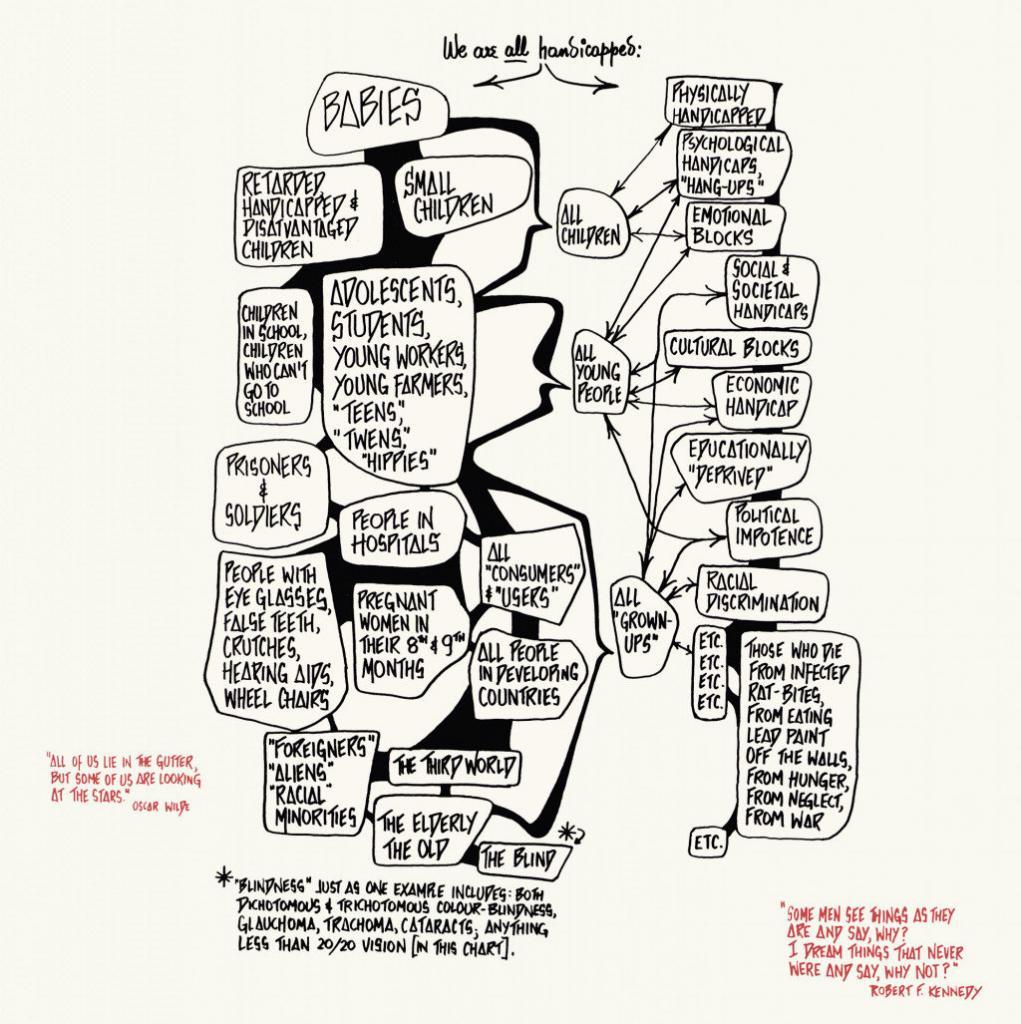 We are all handicapped:
BABIES
RETARDED,
HANDICAPPED &
DISATVANTAGED
CHILDREN
SMALL
CHILDREN
CHILDREN
IN SCHOOL,
CHILDREN
WHO CAN'T
GO TO
SCHOOL
ADOLESCENTS,
STUDENTS,
YOUNG WORKERS,
YOUNG FARMERS,
"TEENS,"
"TWENS,"
"HIPPIES"
PRISONERS
&
SOLDIERS
PEOPLE IN
HOSPITALS
PEOPLE WITH
EYE GLASSES,
FALSE TEETH,
CRUTCHES,
HEARING AIDS,
WHEEL CHAIRS
PREGNANT
WOMEN IN
THEIR 8TH & 9TH
MONTHS
ALL
"CONSUMERS"
& "USERS"
ALL PEOPLE
IN DEVELOPING
COUNTRIES
"FOREIGNERS"
"ALIENS"
"RACIAL"
MINORITIES
THE THIRD WORLD
THE ELDERLY
THE OLD
THE BLIND
*?
ALL
CHILDREN
ALL
YOUNG
PEOPLE
ALL
"GROWN-
UPS"
PHYSICALLY
HANDICAPPED
PSYCHOLOGICAL
HANDICAPS,
"HANG-UPS"
EMOTIONAL
BLOCKS
SOCIAL &
SOCIETAL
HANDICAPS
CULTURAL BLOCKS
ECONOMIC
HANDICAP
EDUCATIONALLY
"DEPRIVED"
POLITICAL
IMPOTENCE
RACIAL
DISCRIMINATION
ETC.
ETC.
ETC.
ETC.
THOSE WHO DIE
FROM INFECTED
RAT-BITES,
FROM EATING
LEAD PAINT
OFF THE WALLS,
FROM HUNGER,
FROM NEGLECT,
FROM WAR
ETC.
"ALL OF US LIE IN THE GUTTER,
BUT SOME OF US ARE LOOKING
AT THE STARS."
OSCAR WILDE
* "BLINDNESS" JUST AS ONE EXAMPLE INCLUDES: BOTH
DICHOTOMOUS & TRICHOTOMOUS COLOUR-BLINDNESS,
GLAUCHOMA, TRACHOMA, CATARACTS, ANYTHING
LESS THAN 20/20 VISION [IN THIS CHART].
"SOME MEN SEE THINGS AS THEY
ARE AND SAY, WHY?
I DREAM THINGS THAT NEVER
WERE AND SAY, WHY NOT?"
ROBERT F. KENNEDY